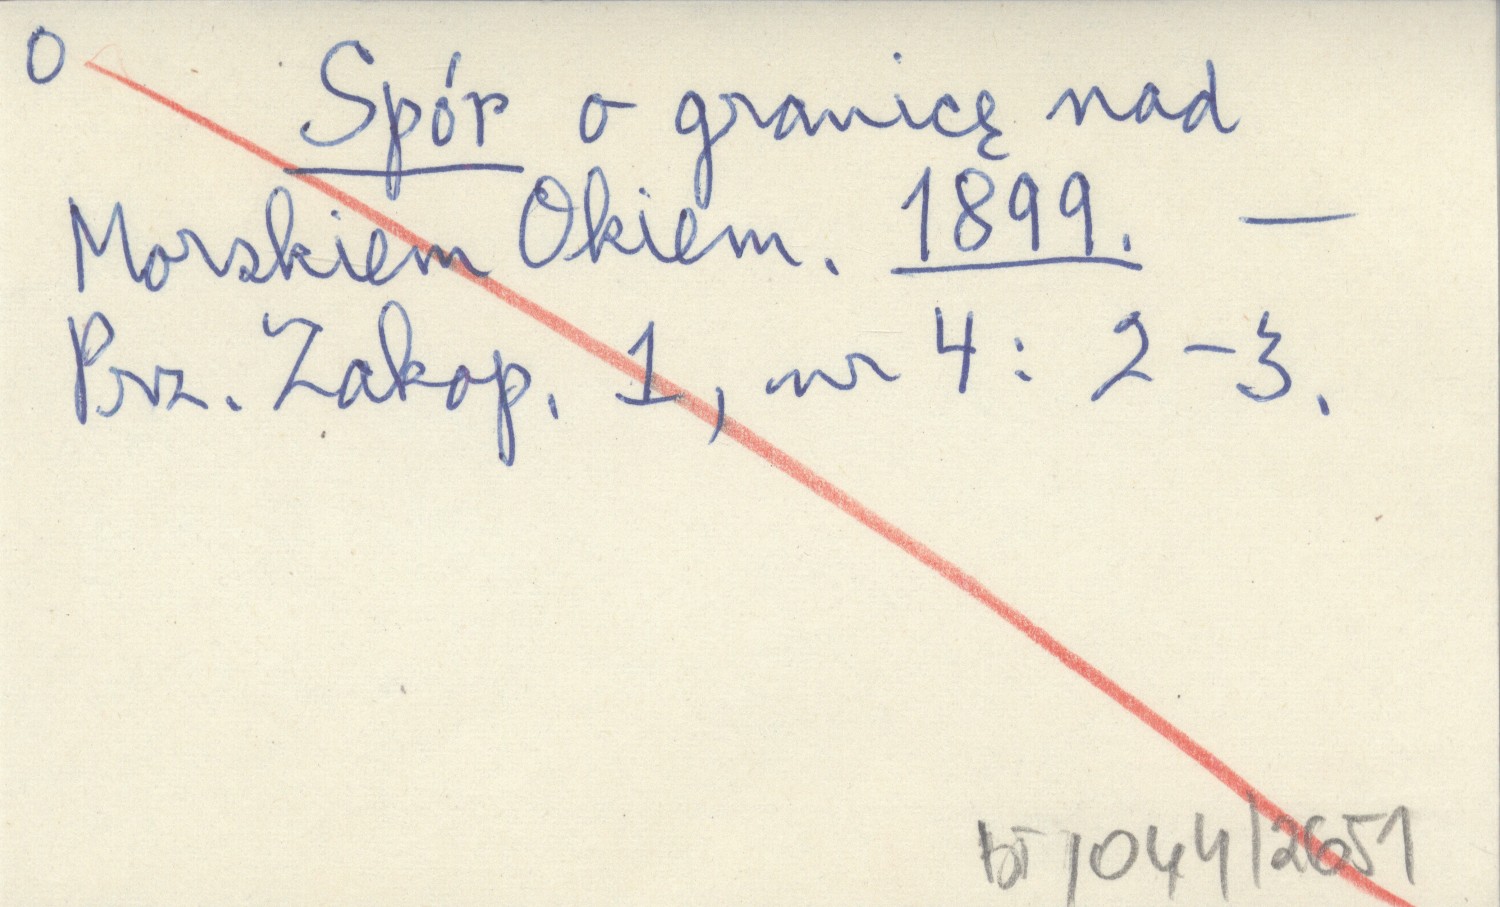 O
Spór o granicę nad
Morskiem Okiem. 1899. —
Prz. Zakop. 1, nr 4: 2-3.
/044/2651